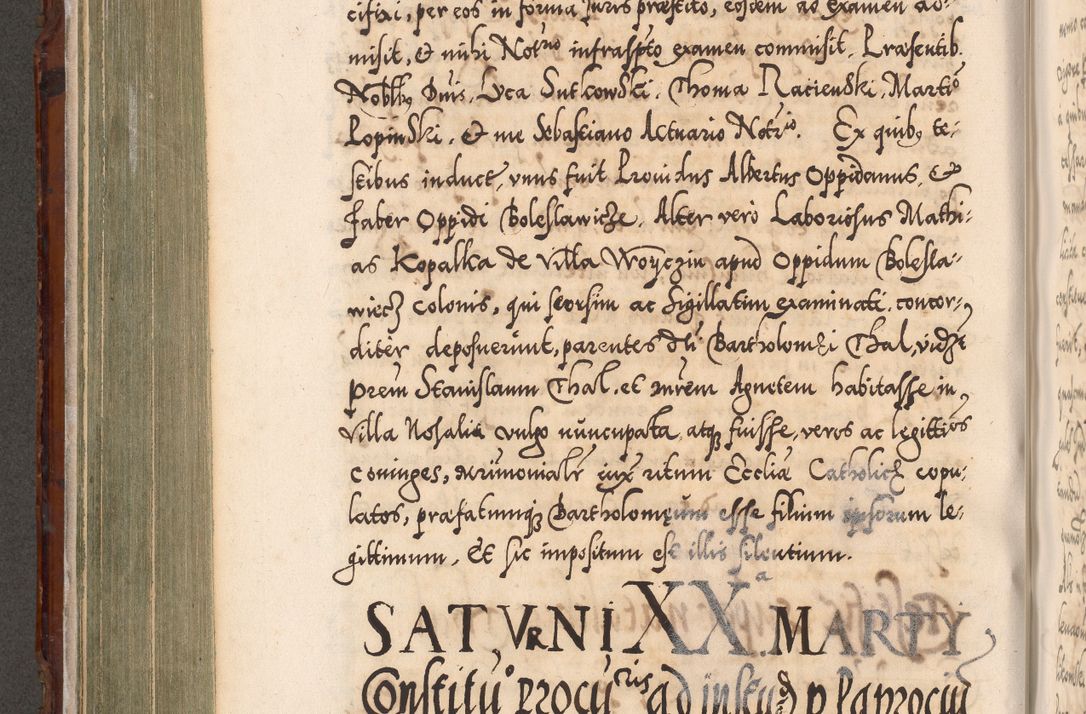 cifixi, per eos in forma Juris præstito, eosdem ad Examen ad-
misit, & mihi Notrio infrasspto examen commisit. Præsentib.
Nobilbꝫ Dnis. Luca Sutkowski. Thoma Raciendski. Martio
Lopinski. & me Sebastiano Actuario Notrio. Ex quibꝫ te-
stibus induct, vnus fuit Prouidus Albertus Oppidanus, &
faber Oppidi Boleslawicze. Alter verò Laboriosus Mathi-
as Kopalka de Villa Woyczin apud Oppidum Bolesla-
wiecz Colonis, qui seorsim ac sigillatim examinati, concor-
diter deposuerunt, parentes dti Bartholomæi Thal, vidzt
prem Stanislaum Thal. et mrem Agnetem habitasse in
Villa Nosalie vulgo nuncupata, atqꝫ fuisse, veros ac legittios
coniuges, mrimonialr iux ritum Eccliæ Catholicę copu-
latos, præfatumqꝫ Bartholomęum esse filium ipsorum le-
gittimum. Et sic impositum est illis silentium.
SATVRNI XXa MARTY
Constitu° procuris ad instad p Laprocin